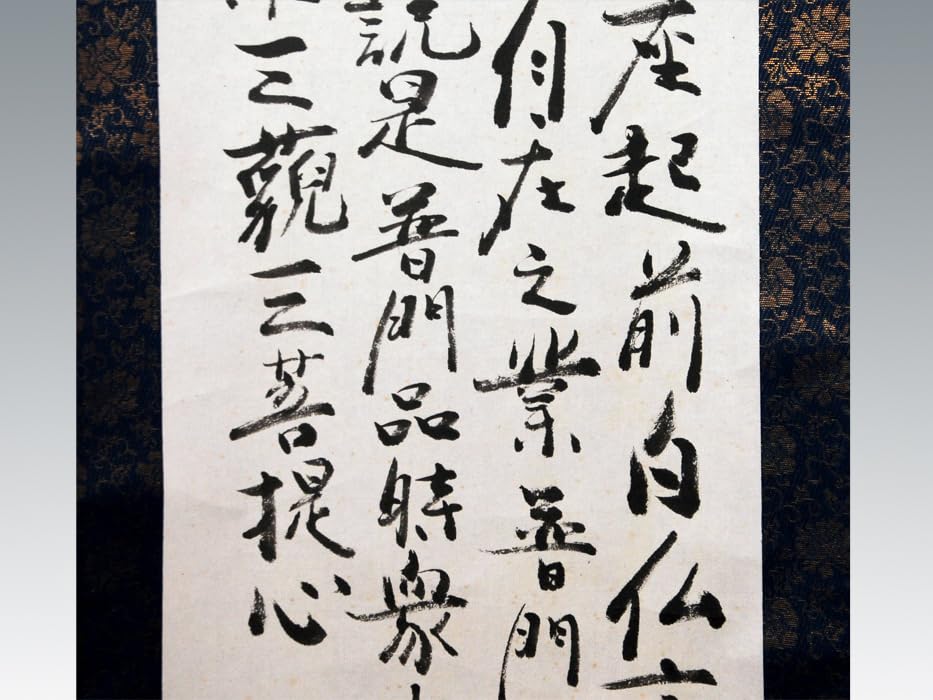 座起前白仏
自在之業普門
説是普門品時衆
三藐三菩提心